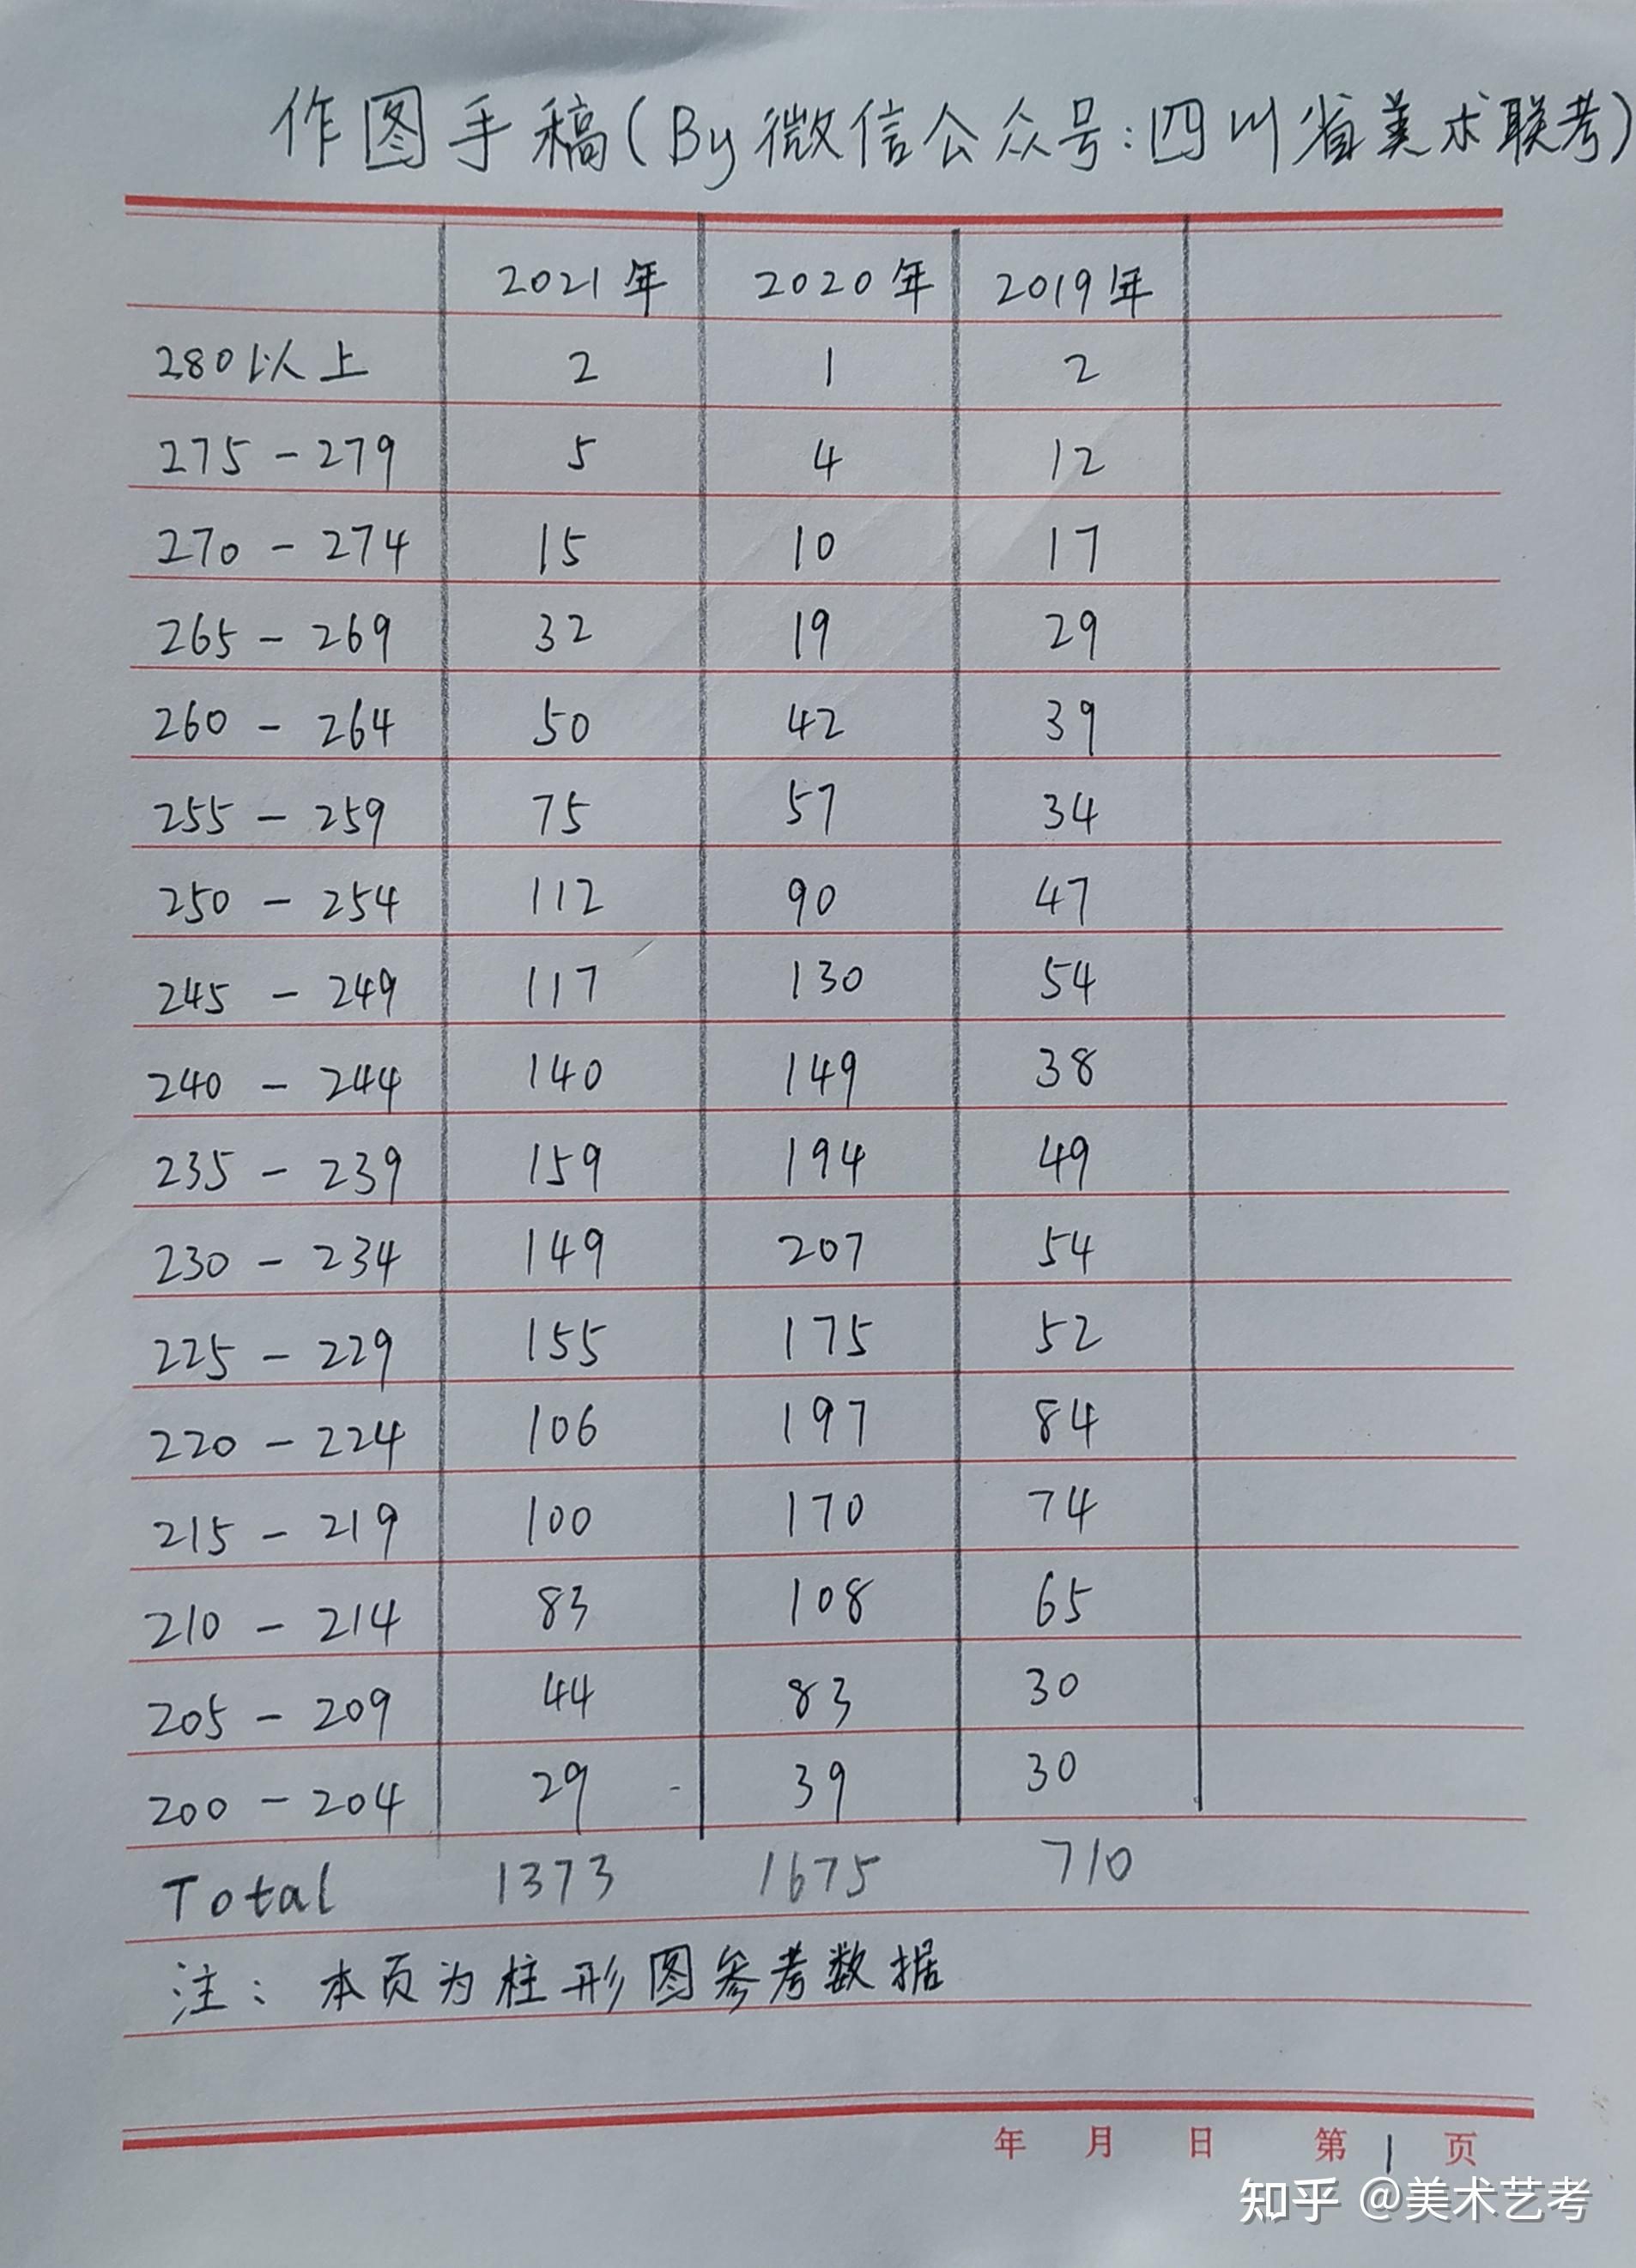 作图手稿(By微信公众号:四川省美术联考)
2021年 2020年 2019年
280以上 2 1 2
275-279 5 4 12
270-274 15 10 17
265-269 32 19 29
260-264 50 42 39
255-259 75 57 34
250-254 112 90 47
245-249 117 130 54
240-244 140 149 38
235-239 159 194 49
230-234 149 207 54
225-229 155 175 52
220-224 106 197 84
215-219 100 170 74
210-214 83 108 65
205-209 44 83 30
200-204 29 39 30
Total 1373 1675 710
注:本页为柱形图参考数据
年 月 日 第 1 页
知乎 @美术艺考